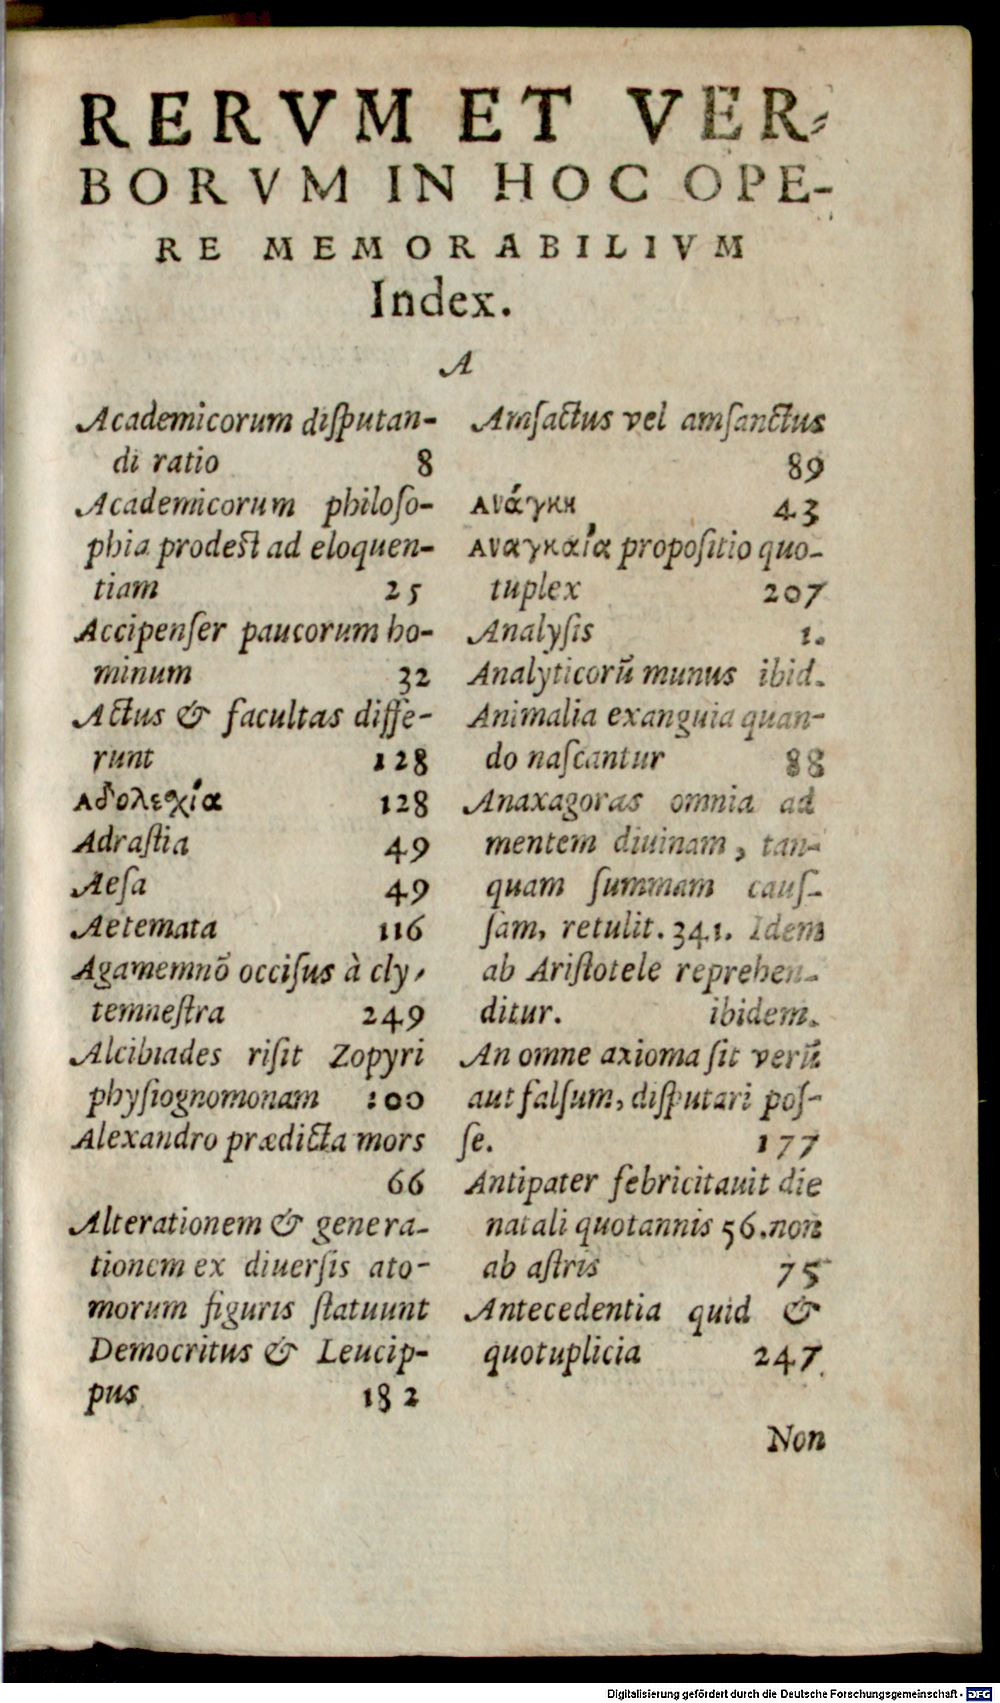 RERVM ET VER-
BORVM IN HOC OPE-
RE MEMORABILIVM
Index.
A
Academicorum diſputan-
di ratio 8
Academicorum philoſo-
phia prodest ad eloquen-
tiam 25
Accipenſer paucorum ho-
minum 32
Actus & facultas diffe-
runt 128
ΑδολεϚχία 128
Adraſtia 49
Aeſa 49
Aetemata 116
Agamemnō occiſus à cly-
temneſtra 249
Alcibiades riſit Zopyri
phyſiognomonam 100
Alexandro prædicta mors
66
Alterationem & genera-
tionem ex diuerſis ato-
morum figuris ſtatuunt
Democritus & Leucip-
pus 182
Amſactus vel amſanctus
89
Ανάγκη 43
Αναγκαία propoſitio quo-
tuplex 207
Analyſis 1.
Analyticorū munus ibid.
Animalia exanguia quan-
do naſcantur 88
Anaxagoras omnia ad
mentem diuinam, tan-
quam ſummam cauſ-
ſam, retulit. 341. Idem
ab Ariſtotele reprehen-
ditur. ibidem.
An omne axioma ſit verū
aut falſum, diſputari poſ-
ſe. 177
Antipater febricitauit die
natali quotannis 56. non
ab aſtris 75
Antecedentia quid &
quotuplicia 247.
Non
Digitalisierung gefördert durch die Deutsche Forschungsgemeinschaft - DFG